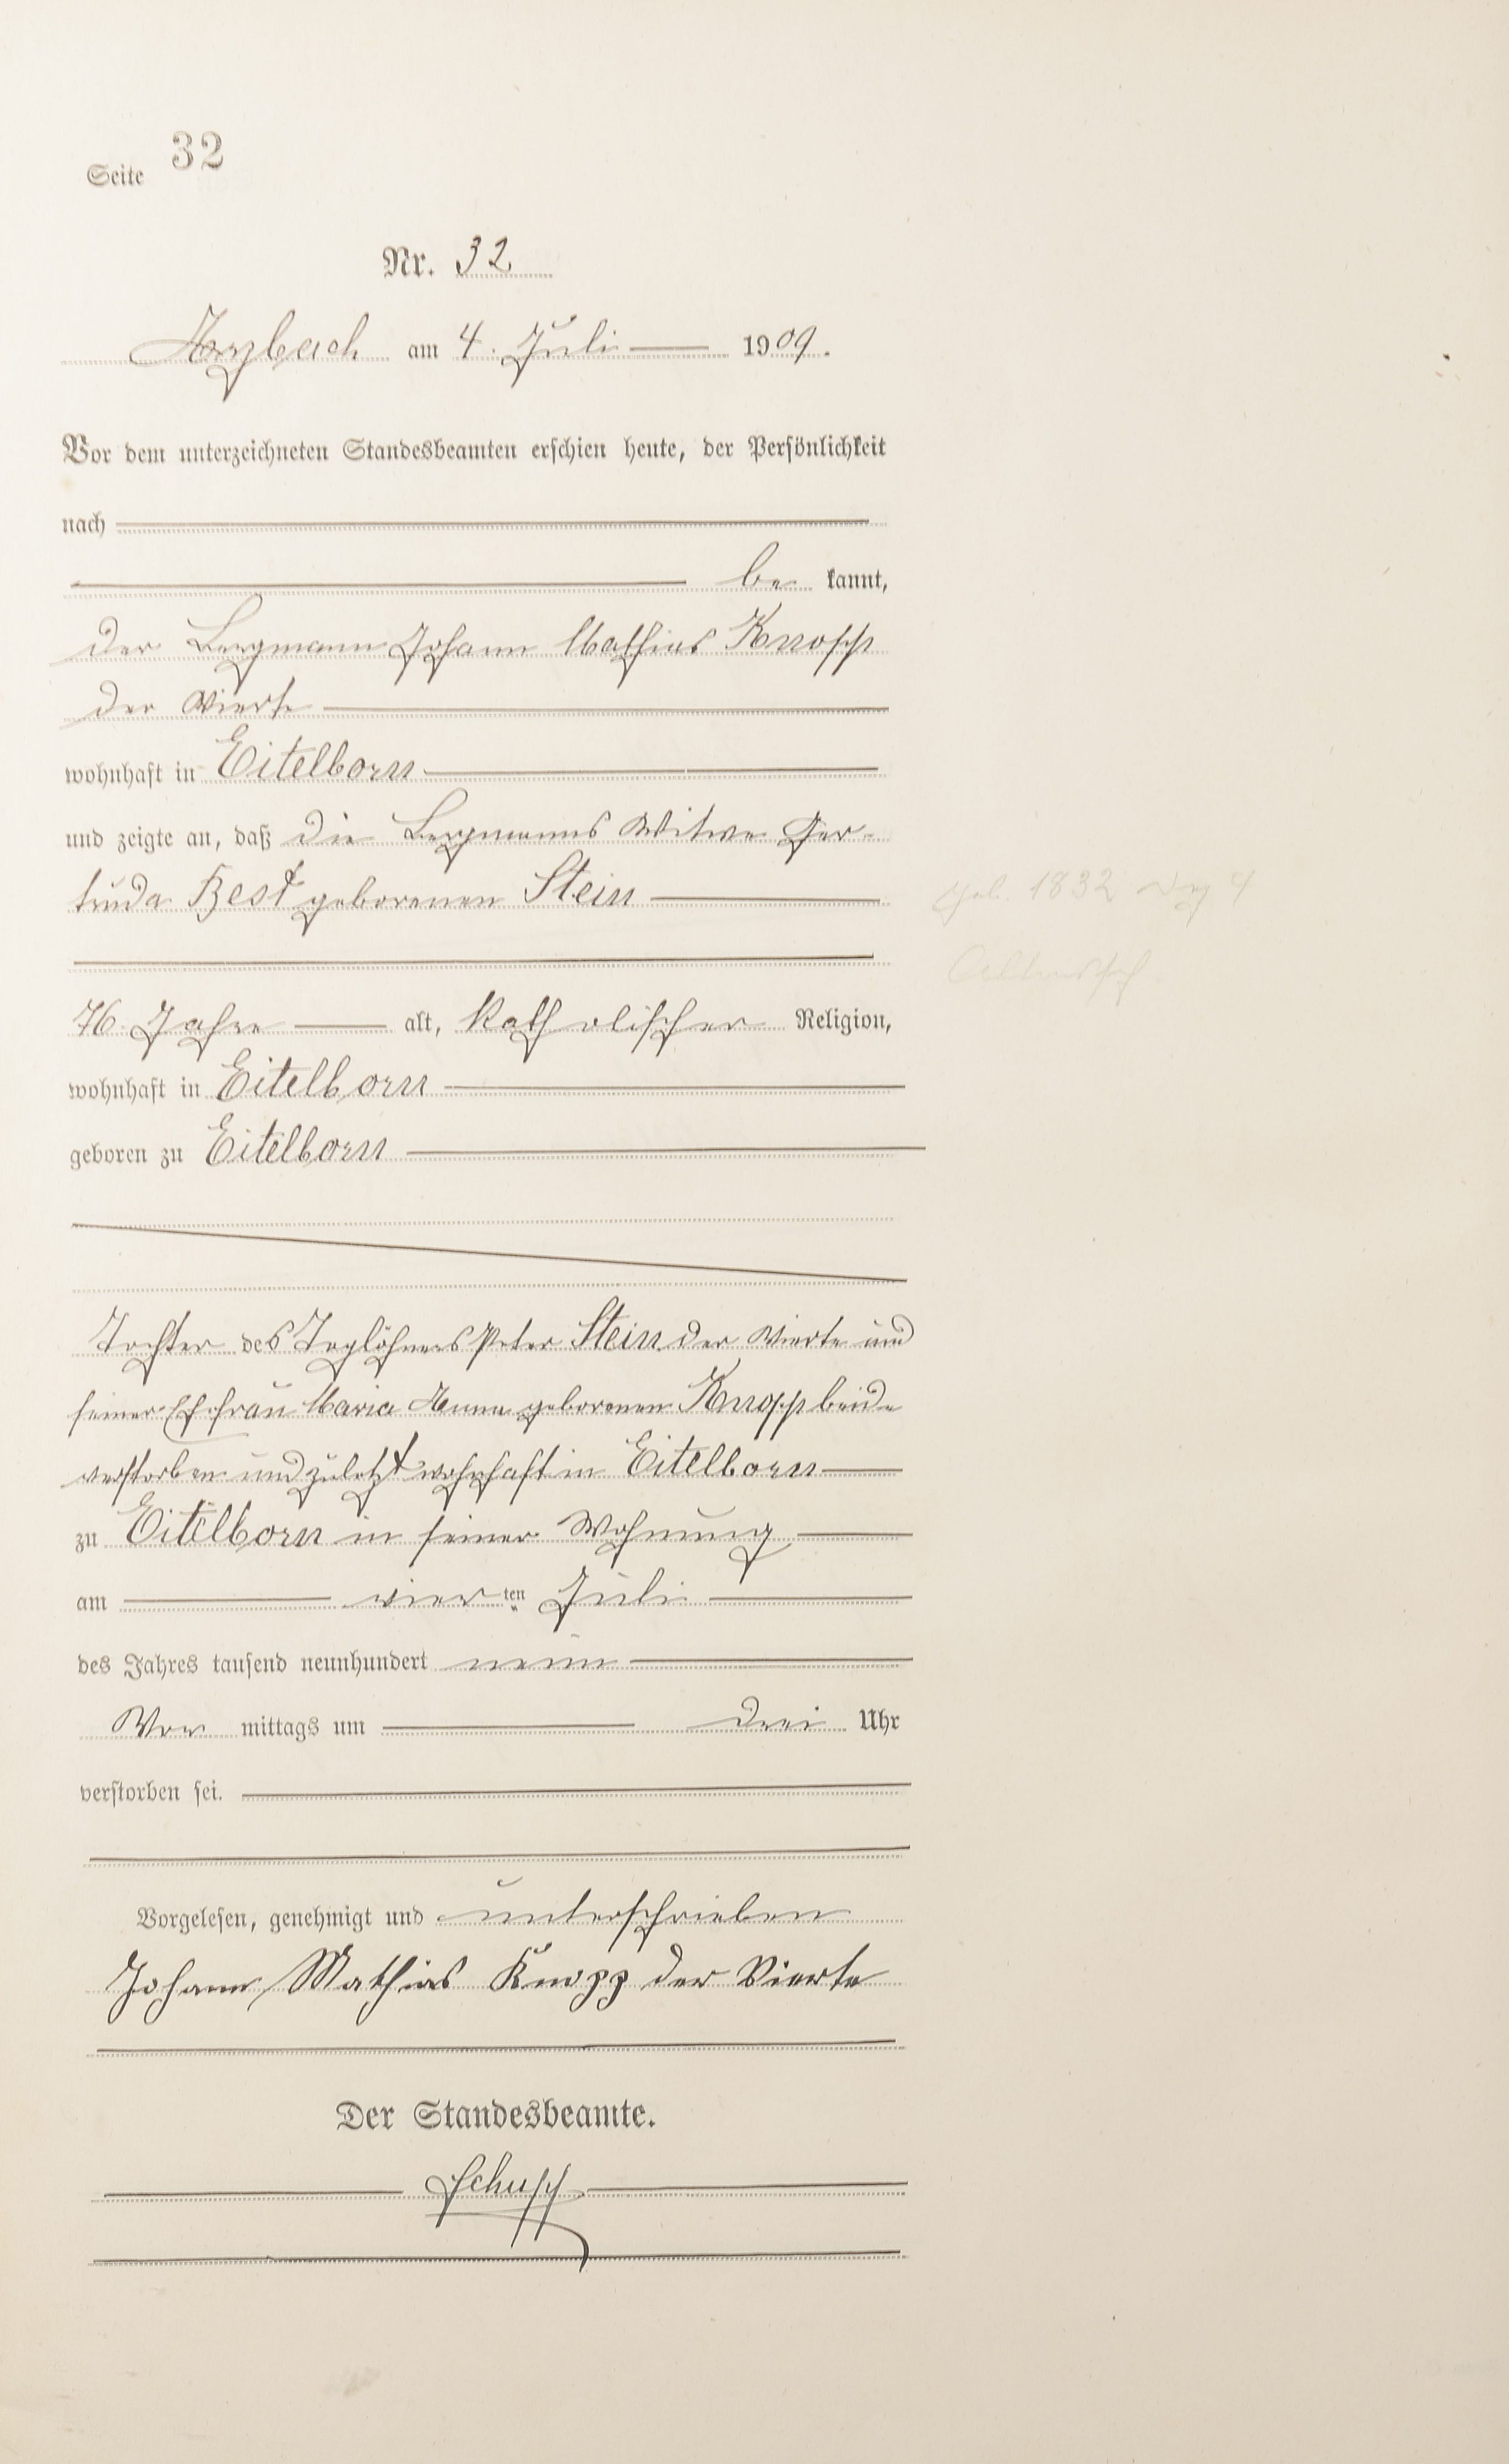 Seite 32
Nr. 32
Arzbach am 4. Juli 1909.
Vor dem unterzeichneten Standesbeamten erschien heute, der Persönlichkeit
nach
be kannt,
der Bergmann Johann Mathias Knopp
der Vierte
wohnhaft in Eitelborn
und zeigte an, daß die Bergmanns Witwe Ger-
truda Best geborenen Stein
geb. 1832
76 Jahre alt, katholischer Religion,
wohnhaft in Eitelborn
geboren zu Eitelborn
Tochter des Taglöhners Peter Stein der Vierte und
seiner Ehefrau Maria Anna geborenen Knopp beide
verstorben und zuletzt wohnhaft in Eitelborn
zu Eitelborn in seiner Wohnung
am vier ten Juli
des Jahres tausend neunhundert neun
Vor mittags um drei Uhr
verstorben sei.
Vorgelesen, genehmigt und unterschrieben
Johann Mathias Knopp der Vierte
Der Standesbeamte.
Schupp